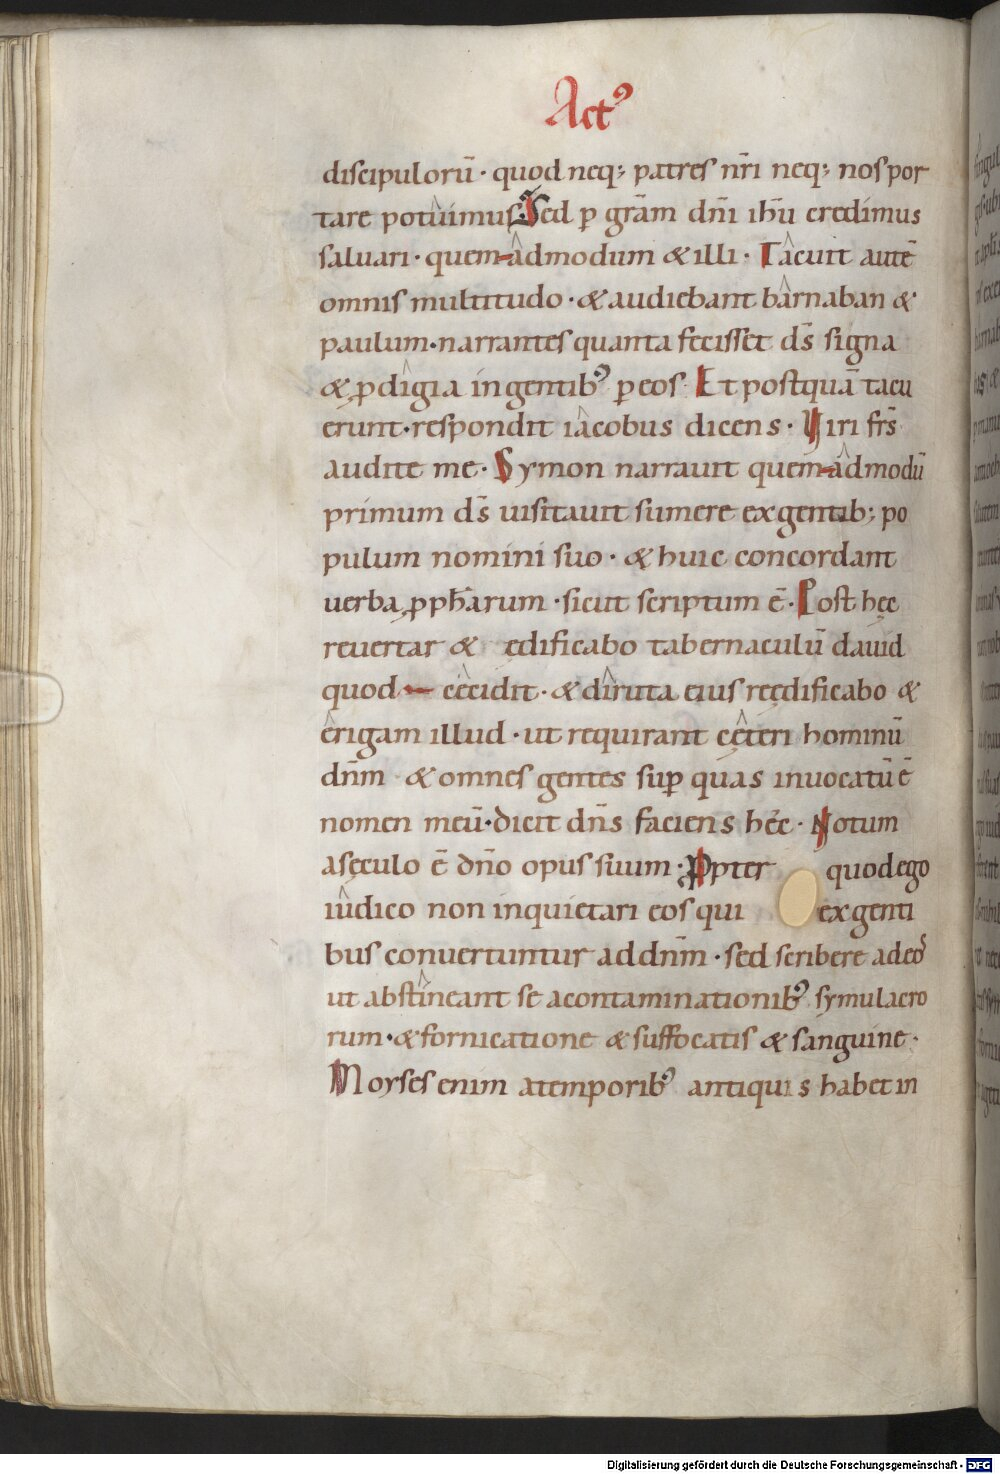 Actꝰ
discipulorū · quod neq; patres nr̄i neq; nos por
tare potuimus Sed p gr̄am dn̄i ih̄u credimus
saluari · quem admodum & illi · Tacuit autē
omnis multitudo · & audiebant barnaban &
paulum · narrantes quanta fecisset ds̄ signa
& ꝓdigia in gentibꝰ ꝑ eos · Et postquā tacu
erunt · respondit iacobus dicens · Viri fr̄s
audite me · Symon narrauit quem admodū
primum ds̄ uisitauit sumere ex gentib; po
pulum nomini suo · & huic concordant
uerba ꝓph̄arum · sicut scriptum ē · Post hęc
reuertar & ędificabo tabernaculū dauid
quod cecidit · & diruta eius reędificabo &
erigam illud · ut requirant cęteri hominū
dn̄m · & omnes gentes sup̄ quas inuocatū ē
nomen meū · dicit dn̄s faciens hęc · Notum
a sęculo ē dn̄o opus suum · Ꝓpter quod ego
iudico non inquietari eos qui ex genti
bus conuertuntur ad dn̄m · sed scribere ad eos
ut abstineant se a contaminationibꝰ symulacro
rum · & fornicatione & suffocatis & sanguine ·
Moyses enim a temporibꝰ antiquis habet in
Digitalisierung gefördert durch die Deutsche Forschungsgemeinschaft - DFG